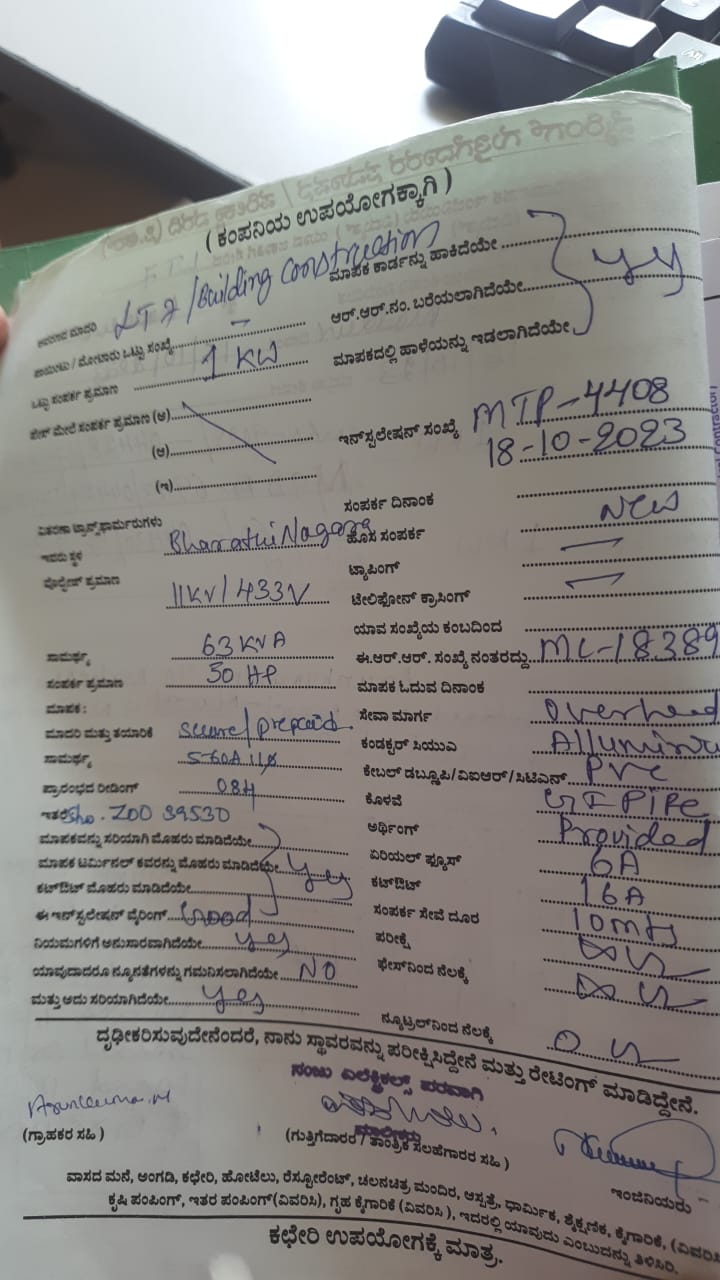 ( ಕಂಪನಿಯ ಉಪಯೋಗಕ್ಕಾಗಿ )
ಮಾದರಿ LT 7 / Building Construction
ಮಾಪಕ ಕಾರ್ಡನ್ನು ಹಾಕಿದೆಯೇ
ಪಾಯಿಂಟು / ಮೋಟಾರು ಒಟ್ಟು ಸಂಖ್ಯೆ
ಆರ್.ಆರ್.ನಂ. ಬರೆಯಲಾಗಿದೆಯೇ yes
ಒಟ್ಟು ಸಂಪರ್ಕ ಪ್ರಮಾಣ 1 KW
ಮಾಪಕದಲ್ಲಿ ಹಾಳೆಯನ್ನು ಇಡಲಾಗಿದೆಯೇ
ಮೇಲೆ ಸಂಪರ್ಕ ಪ್ರಮಾಣ (ಅ)
ಇನ್‌ಸ್ಟಲೇಷನ್ ಸಂಖ್ಯೆ MTP-4408
(ಆ)
18-10-2023
(ಇ)
ಸಂಪರ್ಕ ದಿನಾಂಕ
ವಿತರಣಾ ಟ್ರಾನ್ಸ್‌ಫಾರ್ಮರುಗಳು
ಹೊಸ ಸಂಪರ್ಕ New
ಇರುವ ಸ್ಥಳ Bharathi Nagara
ಟ್ಯಾಪಿಂಗ್
ವೋಲ್ಟೇಜ್ ಪ್ರಮಾಣ 11KV/433V
ಟೇಲಿಫೋನ್ ಕ್ರಾಸಿಂಗ್
ಯಾವ ಸಂಖ್ಯೆಯ ಕಂಬದಿಂದ
ಸಾಮರ್ಥ್ಯ 63 KVA
ಈ.ಆರ್.ಆರ್. ಸಂಖ್ಯೆ ನಂತರದ್ದು ML-18389
ಸಂಪರ್ಕ ಪ್ರಮಾಣ 50 HP
ಮಾಪಕ ಓದುವ ದಿನಾಂಕ
ಮಾಪಕ :
ಸೇವಾ ಮಾರ್ಗ Overhead
ಮಾದರಿ ಮತ್ತು ತಯಾರಿಕೆ secure/prepaid
ಕಂಡಕ್ಟರ್ ಸಿಯುಎ
ಸಾಮರ್ಥ್ಯ 5-60A 1ø
ಕೇಬಲ್ ಡಬ್ಲೂಪಿ/ವಿಐಆರ್/ಸಿಟಿಎಸ್ PVC
ಪ್ರಾರಂಭದ ರೀಡಿಂಗ್ 084
ಕೊಳವೆ GI PIPe
ಇತರೆ Sno. ZOD 39530
ಅರ್ಥಿಂಗ್ Provided
ಮಾಪಕವನ್ನು ಸರಿಯಾಗಿ ಮೊಹರು ಮಾಡಿದೆಯೇ
ಏರಿಯಲ್ ಫ್ಯೂಸ್ 6A
ಮಾಪಕ ಟರ್ಮಿನಲ್ ಕವರನ್ನು ಮೊಹರು ಮಾಡಿದೆಯೇ yes
ಕಟ್‌ಔಟ್ 16A
ಕಟ್‌ಔಟ್ ಮೊಹರು ಮಾಡಿದೆಯೇ
ಸಂಪರ್ಕ ಸೇವೆ ದೂರ 10mts
ಈ ಇನ್‌ಸ್ಟಲೇಷನ್ ವೈರಿಂಗ್ Good
ಪರೀಕ್ಷೆ
ನಿಯಮಗಳಿಗೆ ಅನುಸಾರವಾಗಿದೆಯೇ yes
ಫೇಸ್‌ನಿಂದ ನೆಲಕ್ಕೆ
ಯಾವುದಾದರೂ ನ್ಯೂನತೆಗಳನ್ನು ಗಮನಿಸಲಾಗಿದೆಯೇ NO
ಮತ್ತು ಅದು ಸರಿಯಾಗಿದೆಯೇ yes
ನ್ಯೂಟ್ರಲ್‌ನಿಂದ ನೆಲಕ್ಕೆ
ದೃಢೀಕರಿಸುವುದೇನೆಂದರೆ, ನಾನು ಸ್ಥಾವರವನ್ನು ಪರೀಕ್ಷಿಸಿದ್ದೇನೆ ಮತ್ತು ರೇಟಿಂಗ್ ಮಾಡಿದ್ದೇನೆ.
ಸಂಜು ಎಲೆಕ್ಟ್ರಿಕಲ್ಸ್ ಪರವಾಗಿ
ಮಾಲೀಕರು
(ಗ್ರಾಹಕರ ಸಹಿ )
(ಗುತ್ತಿಗೆದಾರರ / ತಾಂತ್ರಿಕ ಸಲಹೆಗಾರರ ಸಹಿ )
ಇಂಜಿನಿಯರು
ವಾಸದ ಮನೆ, ಅಂಗಡಿ, ಕಛೇರಿ, ಹೋಟೆಲು, ರೆಸ್ಟೋರೆಂಟ್, ಚಲನಚಿತ್ರ ಮಂದಿರ, ಆಸ್ಪತ್ರೆ, ಧಾರ್ಮಿಕ, ಶೈಕ್ಷಣಿಕ, ಕೈಗಾರಿಕೆ,
ಕೃಷಿ ಪಂಪಿಂಗ್, ಇತರ ಪಂಪಿಂಗ್(ವಿವರಿಸಿ), ಗೃಹ ಕೈಗಾರಿಕೆ (ವಿವರಿಸಿ ), ಇದರಲ್ಲಿ ಯಾವುದು ಎಂಬುದನ್ನು ತಿಳಿಸಿರಿ.
ಕಛೇರಿ ಉಪಯೋಗಕ್ಕೆ ಮಾತ್ರ.